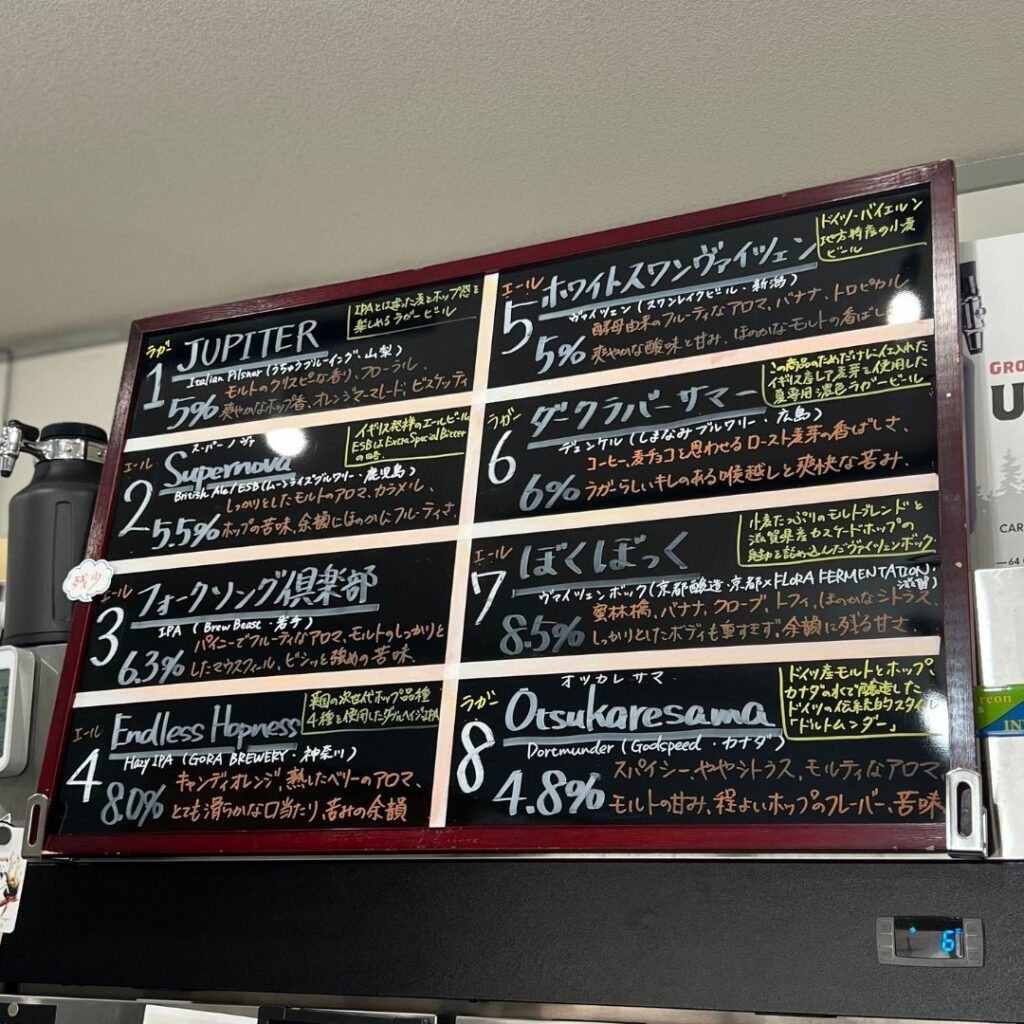 ラガー
1
JUPITER
IPAとは違った麦とホップ感を
楽しめるラガービール
Italian Pilsner(うちゅうブルーイング・山梨)
5%
モルトのクリスピな香り、フローラル、
爽やかなホップ香、オレンジマーマレード、ビスケッティ
エール
2
スーパーノヴァ
Supernova
イギリス発祥のエールビール
ESBはExtra Special Bitter
の略
British Ale/ESB(ムーンライズブルワリー・鹿児島)
5.5%
しっかりとしたモルトのアロマ、カラメル、
ホップの苦味、余韻にほのかにフルーティさ、
残少
エール
3
フォークソング倶楽部
IPA(Brew Beast・岩手)
6.3%
パイニーでフルーティなアロマ、モルトのしっかりと
したマウスフィール、ビシッと強めの苦味
エール
4
Endless Hopness
英国の次世代ホップ品種
4種を使用したダブルヘイジーIPA
Hazy IPA(GORA BREWERY・神奈川)
8.0%
キャンディオレンジ、熟したベリーのアロマ、
とても滑らかな口当たり、苦みの余韻
エール
5
ホワイトスワンヴァイツェン
ドイツ・バイエルン
地方特産の小麦
ビール
ヴァイツェン(スワンレイクビール・新潟)
5%
酵母由来のフルーティなアロマ、バナナ、トロピカル
爽やかな酸味と甘み、ほのかなモルトの香ばし
ラガー
6
ダークラバーサマー
この商品のためだけに仕入れた
イギリス産レア麦芽を使用した
夏専用濃色ラガービール
デュンケル(しまなみブルワリー・広島)
6%
コーヒー、麦チョコを思わせるロースト麦芽の香ばしさ、
ラガーらしいキレのある喉越しと爽快な苦み、
エール
7
ぼくぼっく
小麦たっぷりのモルトブレンドと
滋賀県産カスケードホップの
魅力を詰め込んだヴァイツェンボック
ヴァイツェンボック(京都醸造・京都×FLORA FERMENTATION・
滋賀)
8.5%
蜜林檎、バナナ、クローブ、トフィ、ほのかなシトラス
しっかりとしたボディも重すぎず、余韻に残る甘さ、
ラガー
8
オツカレサマ
Otsukaresama
ドイツ産モルトとホップ、
カナダの水で醸造した
ドイツの伝統的スタイル
「ドルトムンダー」
Dortmunder(Godspeed・カナダ)
4.8%
スパイシー、ややシトラス、モルティなアロマ
モルトの甘み、程よいホップのフレーバー、苦味
GRO
U
CAR
64
reon
IN
6